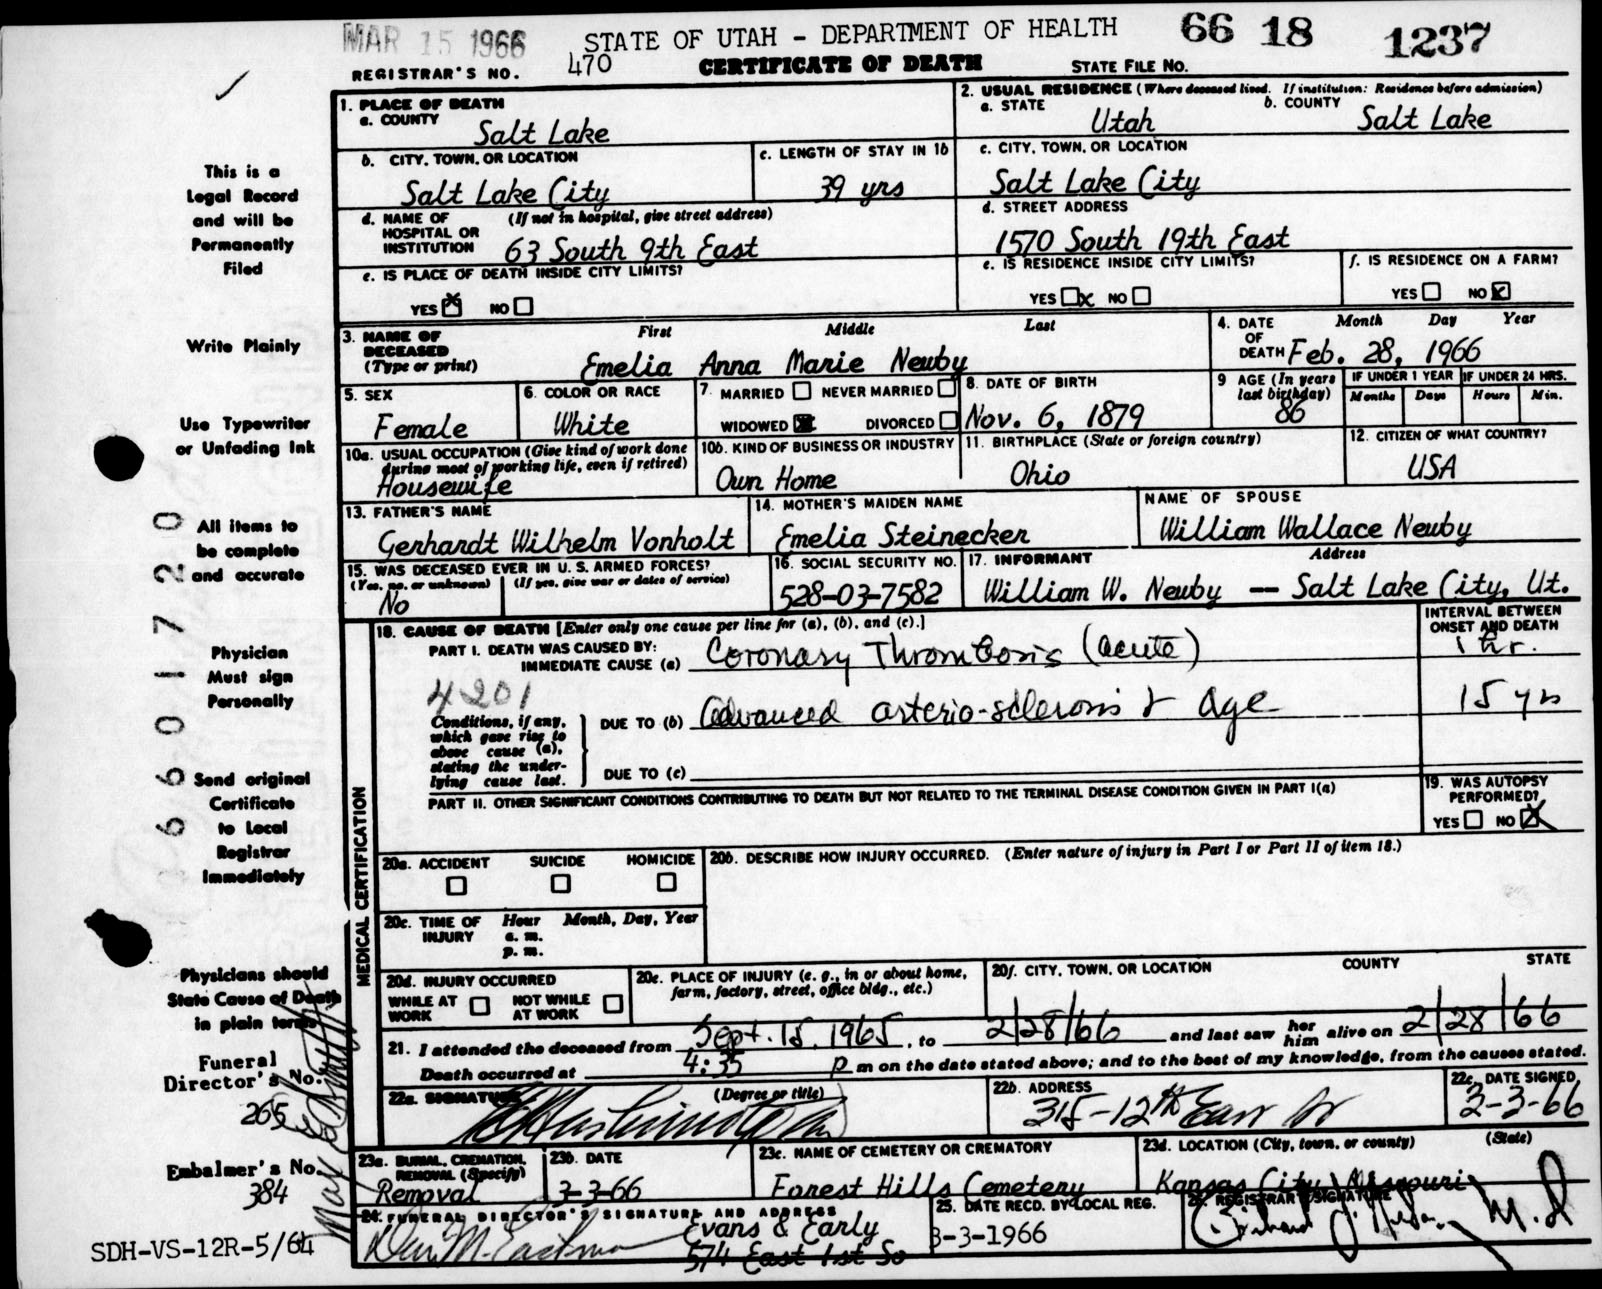 MAR 15 1966
STATE OF UTAH - DEPARTMENT OF HEALTH
66 18 1237
REGISTRAR'S NO. 470
CERTIFICATE OF DEATH
STATE FILE NO.
1. PLACE OF DEATH
a. COUNTY
Salt Lake
2. USUAL RESIDENCE (Where deceased lived. If institution: Residence before admission)
a. STATE
Utah
b. COUNTY
Salt Lake
b. CITY, TOWN, OR LOCATION
Salt Lake City
c. LENGTH OF STAY IN 1b
39 yrs
c. CITY, TOWN, OR LOCATION
Salt Lake City
d. NAME OF HOSPITAL OR INSTITUTION
(If not in hospital, give street address)
63 South 9th East
d. STREET ADDRESS
1570 South 19th East
e. IS PLACE OF DEATH INSIDE CITY LIMITS?
YES X NO
e. IS RESIDENCE INSIDE CITY LIMITS?
YES X NO
f. IS RESIDENCE ON A FARM?
YES NO X
3. NAME OF DECEASED
(Type or print)
First Middle Last
Emelia Anna Marie Newby
4. DATE OF DEATH
Month Day Year
Feb. 28, 1966
5. SEX
Female
6. COLOR OR RACE
White
7. MARRIED NEVER MARRIED
WIDOWED X DIVORCED
8. DATE OF BIRTH
Nov. 6, 1879
9 AGE (In years last birthday)
86
IF UNDER 1 YEAR
Months Days
IF UNDER 24 HRS.
Hours Min.
10a. USUAL OCCUPATION (Give kind of work done during most of working life, even if retired)
Housewife
10b. KIND OF BUSINESS OR INDUSTRY
Own Home
11. BIRTHPLACE (State or foreign country)
Ohio
12. CITIZEN OF WHAT COUNTRY?
USA
13. FATHER'S NAME
Gerhardt Wilhelm Vonholt
14. MOTHER'S MAIDEN NAME
Emelia Steinecker
NAME OF SPOUSE
William Wallace Newby
15. WAS DECEASED EVER IN U. S. ARMED FORCES?
(Yes, no, or unknown) (If yes, give war or dates of service)
No
16. SOCIAL SECURITY NO.
528-03-7582
17. INFORMANT
Address
William W. Newby -- Salt Lake City, Ut.
MEDICAL CERTIFICATION
18. CAUSE OF DEATH [Enter only one cause per line for (a), (b), and (c).]
INTERVAL BETWEEN ONSET AND DEATH
PART I. DEATH WAS CAUSED BY:
IMMEDIATE CAUSE (a)
Coronary Thrombosis (acute)
1 hr.
4201
Conditions, if any, which gave rise to above cause (a), stating the underlying cause last.
DUE TO (b)
Advanced arterio-sclerosis & Age
15 yrs
DUE TO (c)
PART II. OTHER SIGNIFICANT CONDITIONS CONTRIBUTING TO DEATH BUT NOT RELATED TO THE TERMINAL DISEASE CONDITION GIVEN IN PART I(a)
19. WAS AUTOPSY PERFORMED?
YES NO X
20a. ACCIDENT SUICIDE HOMICIDE
20b. DESCRIBE HOW INJURY OCCURRED. (Enter nature of injury in Part I or Part II of item 18.)
20c. TIME OF INJURY
Hour Month, Day, Year
a. m.
p. m.
20d. INJURY OCCURRED
WHILE AT WORK NOT WHILE AT WORK
20e. PLACE OF INJURY (e. g., in or about home, farm, factory, street, office bldg., etc.)
20f. CITY, TOWN, OR LOCATION COUNTY STATE
21. I attended the deceased from Sept. 15, 1965, to 2/28/66 and last saw her him alive on 2/28/66
Death occurred at 4:35 P m on the date stated above; and to the best of my knowledge, from the causes stated.
22a. SIGNATURE (Degree or title)
22b. ADDRESS
315-12th East
22c. DATE SIGNED
3-3-66
23a. BURIAL, CREMATION, REMOVAL (Specify)
Removal
23b. DATE
3-3-66
23c. NAME OF CEMETERY OR CREMATORY
Forest Hills Cemetery
23d. LOCATION (City, town, or county) (State)
Kansas City Missouri
24. FUNERAL DIRECTOR'S SIGNATURE AND ADDRESS
Evans & Early
574 East 1st So
25. DATE RECD. BY LOCAL REG.
3-3-1966
26. REGISTRAR'S SIGNATURE
M.D
This is a
Legal Record
and will be
Permanently
Filed
Write Plainly
Use Typewriter
or Unfading Ink
All items to
be complete
and accurate
Physician
Must sign
Personally
Send original
Certificate
to Local
Registrar
Immediately
Physicians should
State Cause of Death
in plain terms
Funeral
Director's No.
265
Embalmer's No.
384
SDH-VS-12R-5/64
6601720